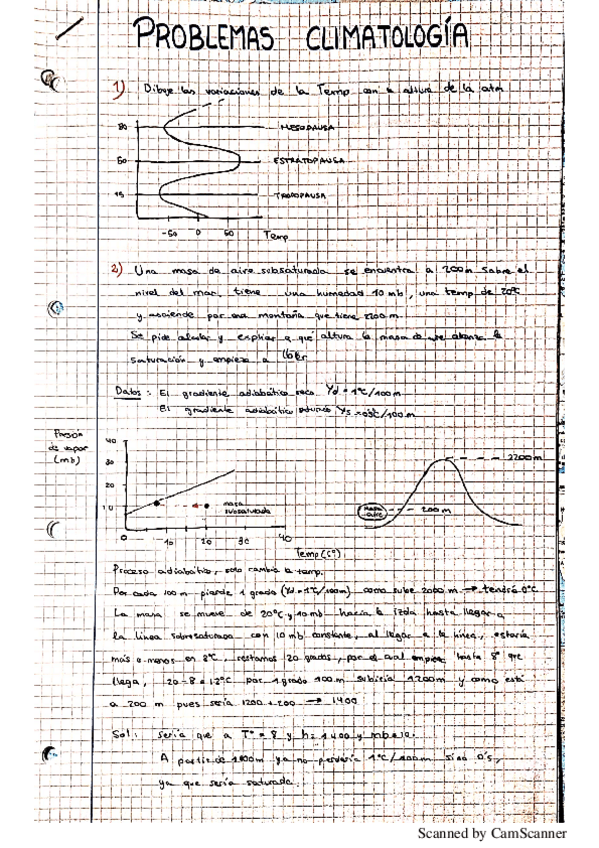 PROBLEMAS CLIMATOLOGÍA
1) Dibuje las variaciones de la Temp con la altura de la atm
80 MESOPAUSA
50 ESTRATOPAUSA
15 TROPOPAUSA
-50 0 50 Temp
2) Una masa de aire subsaturada se encuentra a 200m sobre el
nivel del mar, tiene una humedad 10 mb, una temp de 20ºC
y asciende por una montaña que tiene 2200 m.
Se pide calcular y explicar a qué altura la masa de aire alcanza la
saturación y empieza a llover
Datos: El gradiente adiabático seco Yd = 1ºC/100m
El gradiente adiabático saturado Ys = 0'5ºC/100m
Presión
de vapor
(mb)
40
30
20
10
0 10 20 30 40
masa
subsaturada
Temp (Cº)
2200m
masa
aire
200m
Proceso adiabático, solo cambia la temp.
Por cada 100 m pierde 1 grado (Yd = 1ºC/100m) como sube 2000 m → tendría 0ºC
La masa se mueve de 20ºC y 10 mb hacia la izda hasta llegar a
la línea sobresaturada con 10 mb constante, al llegar a la línea, estaría
más o menos en 8ºC, restamos 20 grados, por el cual empieza, hasta 8º que
llega, 20-8 = 12ºC por 1 grado 100m subiría 1200m y como está
a 200 m pues sería 1200+200 → 1400
Sol: sería que a Tº = 8 y h = 1400 y mb = 10.
A partir de 1400m ya no perdería 1ºC/100m sino 0'5,
ya que sería saturada.
Scanned by CamScanner